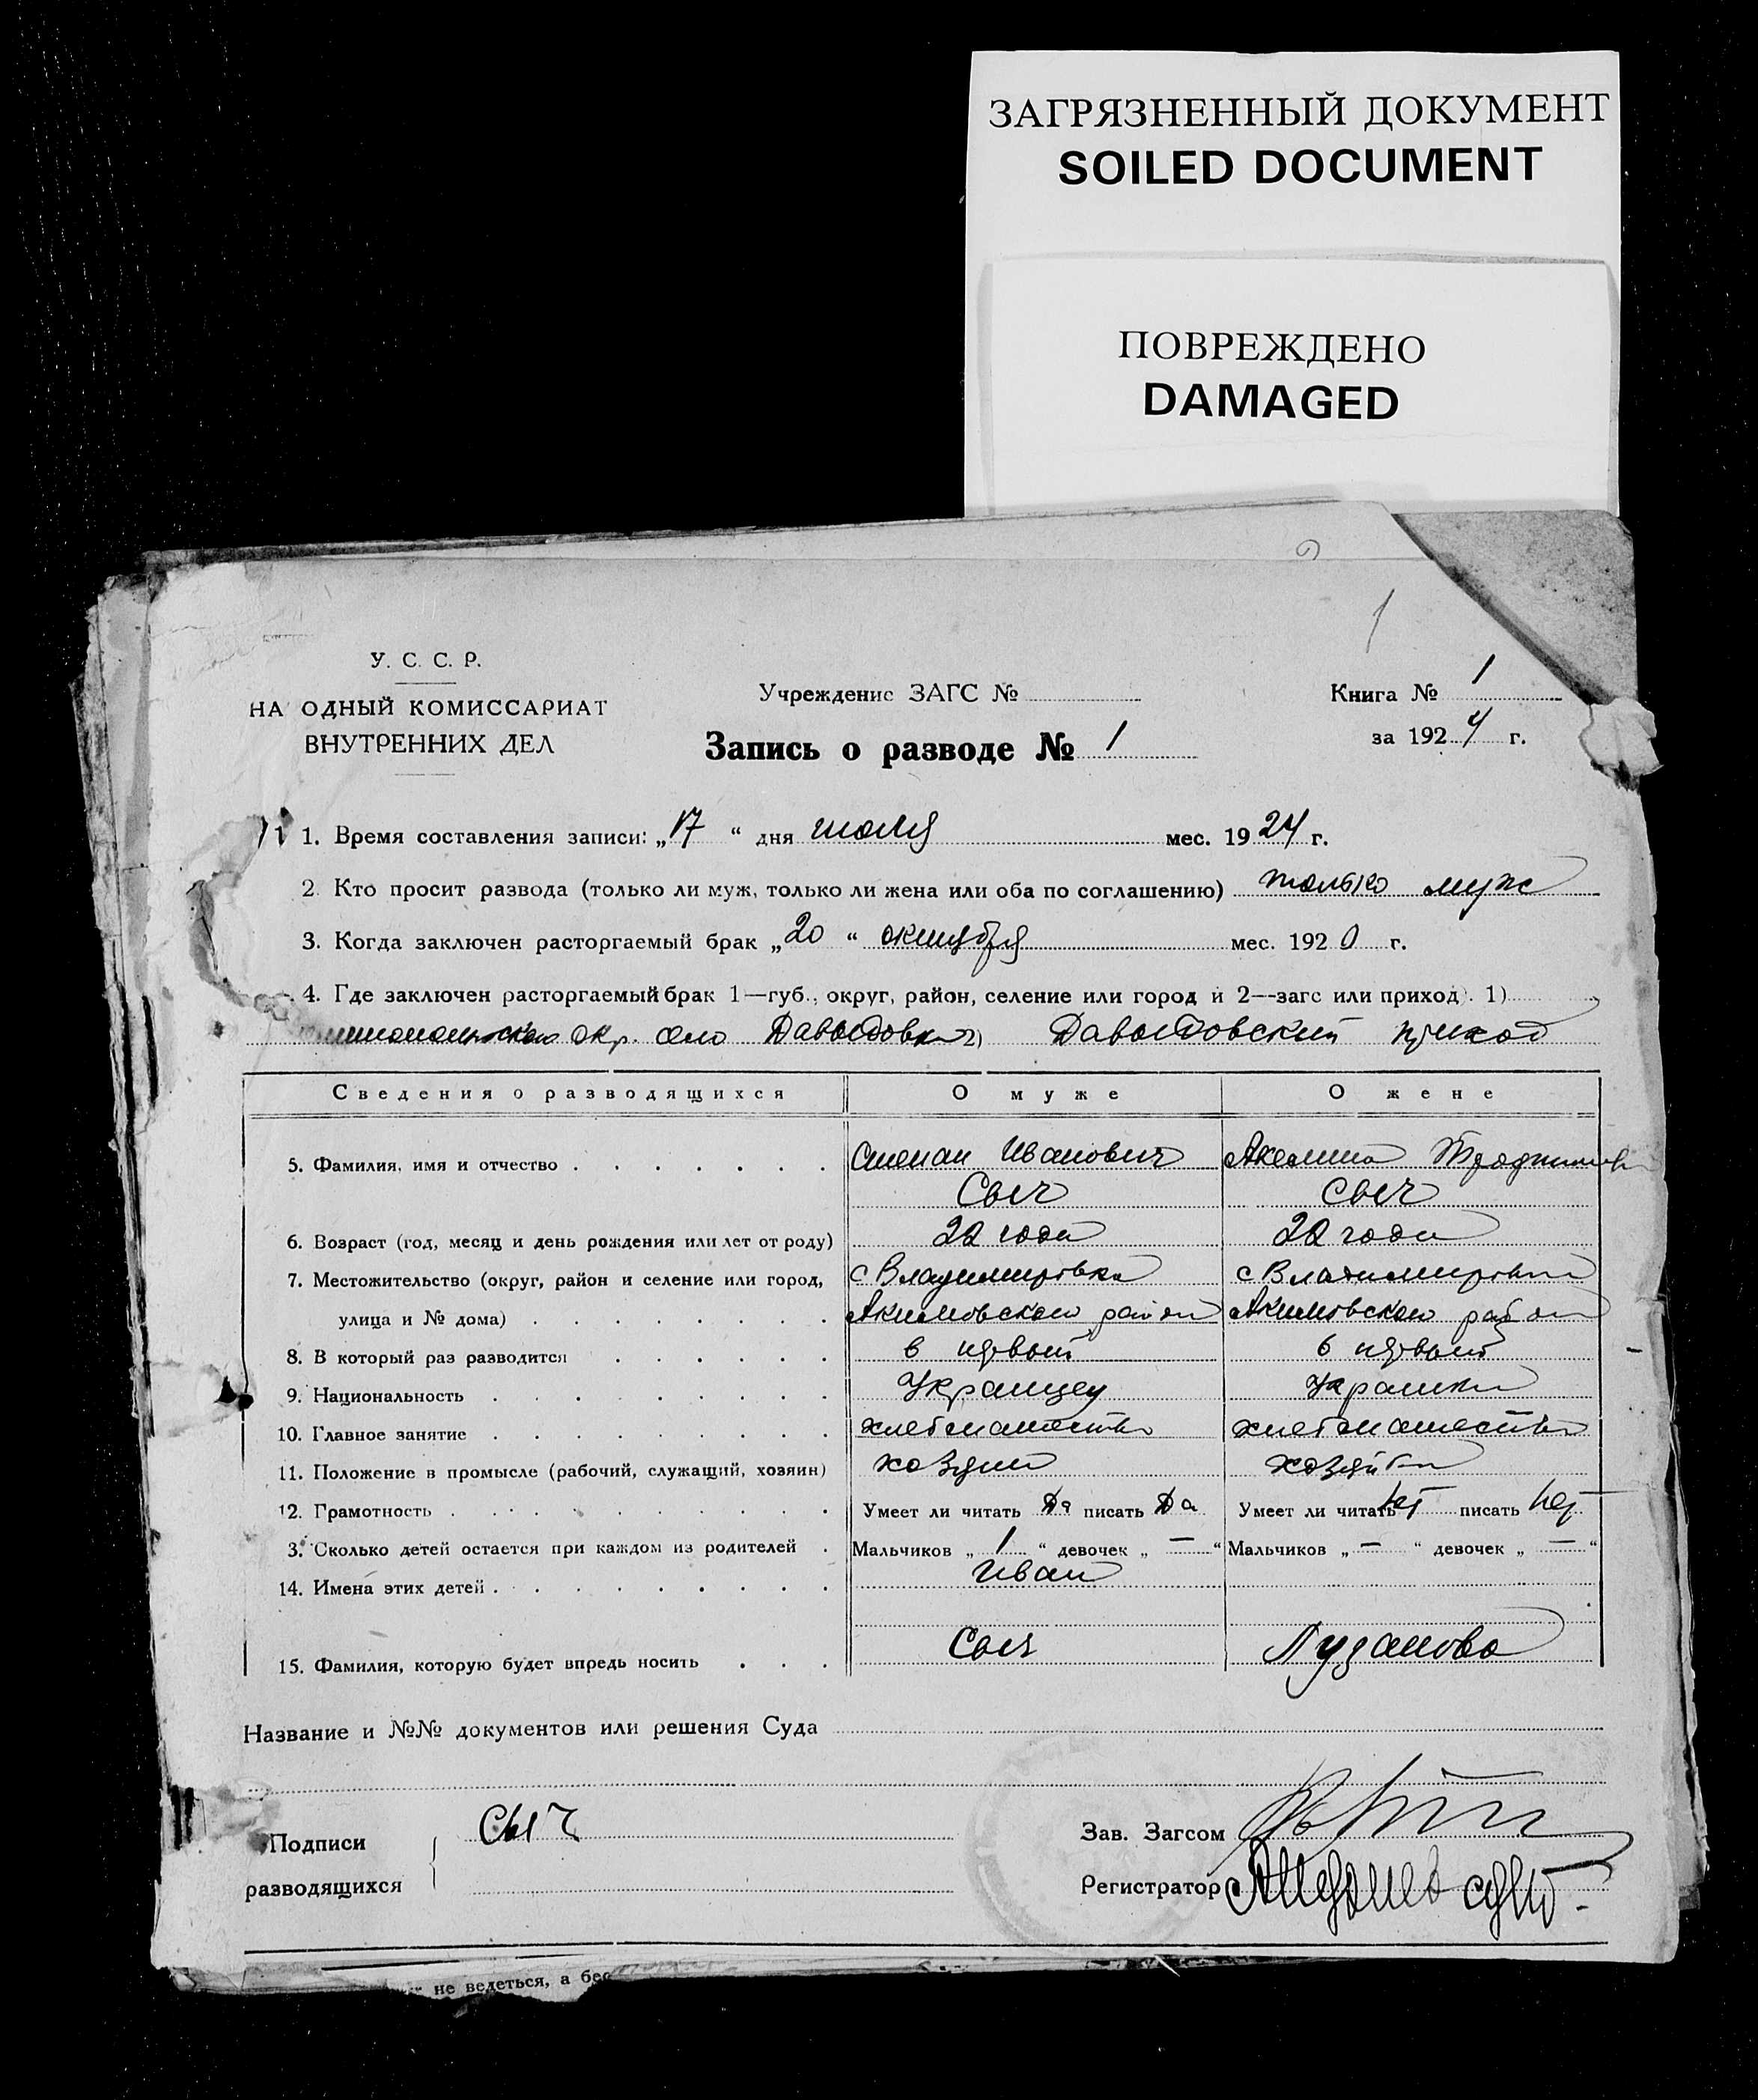 ЗАГРЯЗНЕННЫЙ ДОКУМЕНТ
SOILED DOCUMENT
ПОВРЕЖДЕНО
DAMAGED
1
У. С. С. Р.
НА ОДНЫЙ КОМИССАРИАТ
ВНУТРЕННИХ ДЕЛ
Учреждение ЗАГС №
Запись о разводе № 1
Книга № 1
за 1924 г.
1. Время составления записи: „17“ дня июля мес. 1924 г.
2. Кто просит развода (только ли муж, только ли жена или оба по соглашению) только муж
3. Когда заключен расторгаемый брак „20“ октября мес. 1920 г.
4. Где заключен расторгаемый брак 1—губ., округ, район, селение или город и 2—загс или приход). 1)
окр. село Давыдовка 2) Давыдовский приход
Сведения о разводящихся О муже О жене
5. Фамилия, имя и отчество Степан Иванович Акелина
Сыч Сыч
6. Возраст (год, месяц и день рождения или лет от роду) 22 года 22 года
7. Местожительство (округ, район и селение или город, с Владимировка с Владимировка
улица и № дома) Акимовского район Акимовского район
8. В который раз разводится в первый в первый
9. Национальность Украинец Украинка
10. Главное занятие хлебопашество хлебопашество
11. Положение в промысле (рабочий, служащий, хозяин) хозяин хозяйка
12. Грамотность Умеет ли читать Да писать Да Умеет ли читать нет писать нет
3. Сколько детей остается при каждом из родителей Мальчиков „1“ девочек „—“ Мальчиков „—“ девочек „—“
14. Имена этих детей Иван
15. Фамилия, которую будет впредь носить Сыч Лузанова
Название и №№ документов или решения Суда
Подписи Сыч
разводящихся
Зав. Загсом
Регистратор
не ведеться, а бес